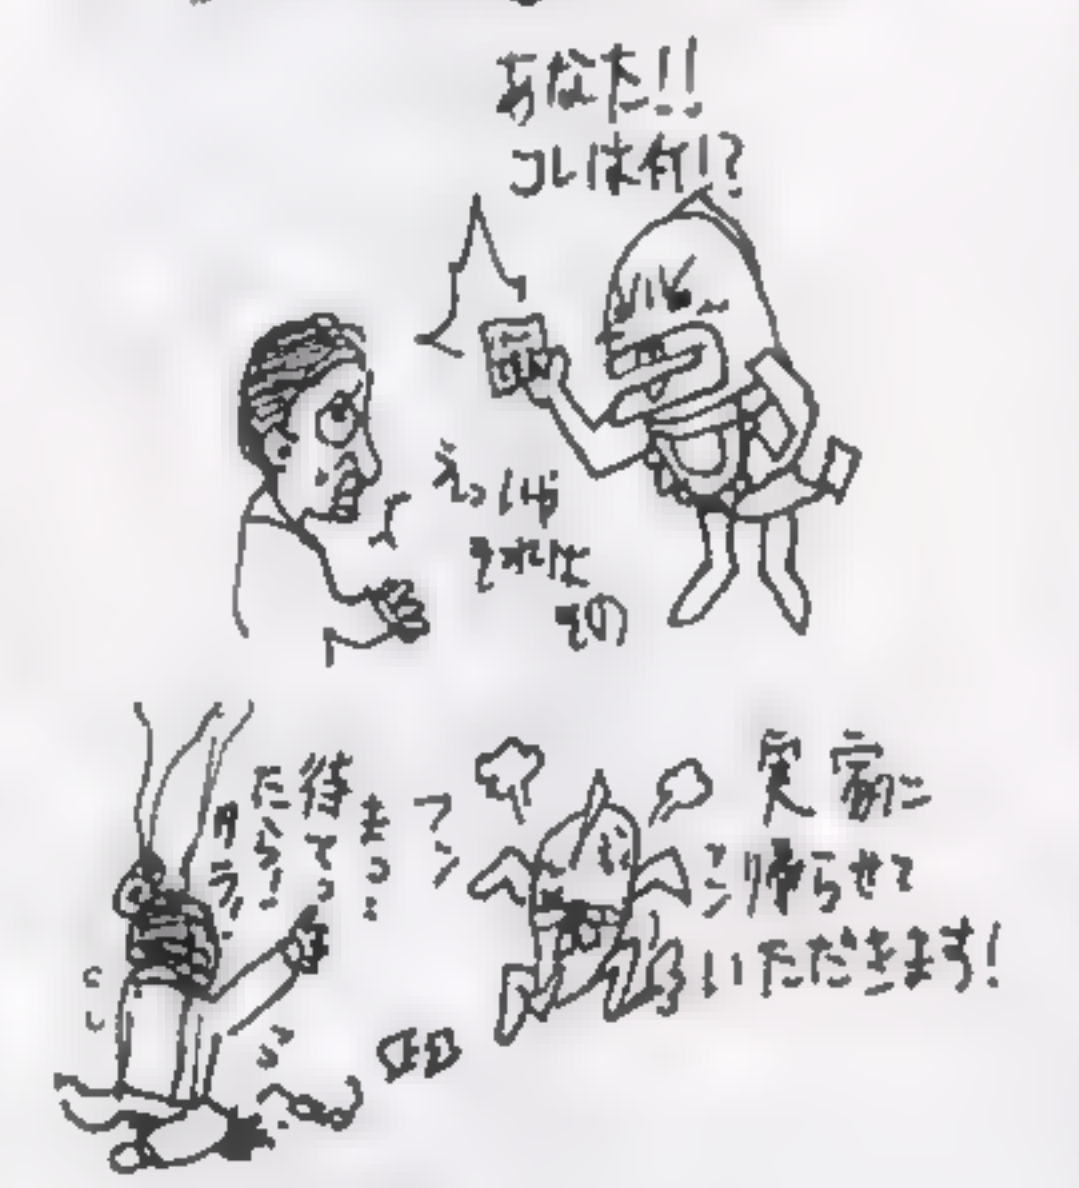 あなた!!
コレは何!?
えっいや
それは
その
実家に
帰らせて
いただきます!
フン
まっ
待てっ
たらっ